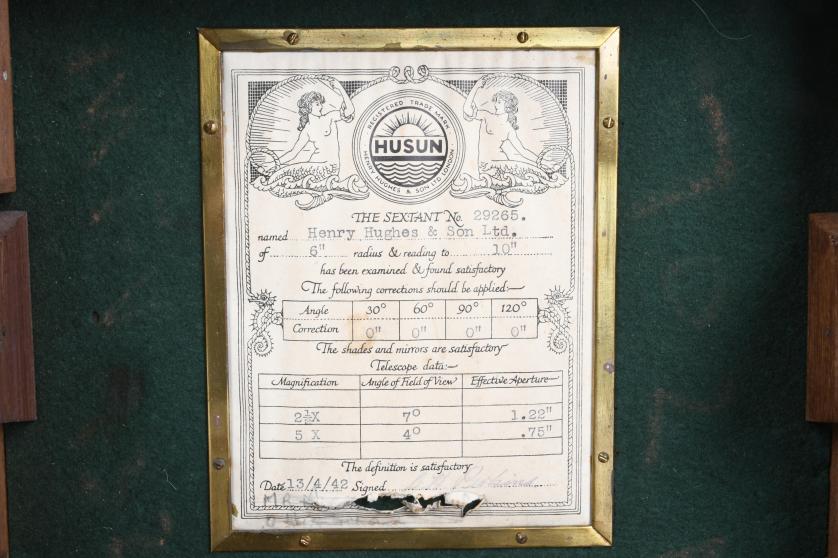 REGISTERED TRADE MARK
HUSUN
HENRY HUGHES & SON LTD LONDON
THE SEXTANT No. 29265.
named Henry Hughes & Son Ltd.
of 6" radius & reading to 10"
has been examined & found satisfactory
The following corrections should be applied:—
Angle 30° 60° 90° 120°
Correction 0" 0" 0" 0"
The shades and mirrors are satisfactory
Telescope data:—
Magnification Angle of Field of View Effective Aperture
2½X 7° 1.22"
5 X 4° .75"
The definition is satisfactory
Date 13/4/42 Signed
MR